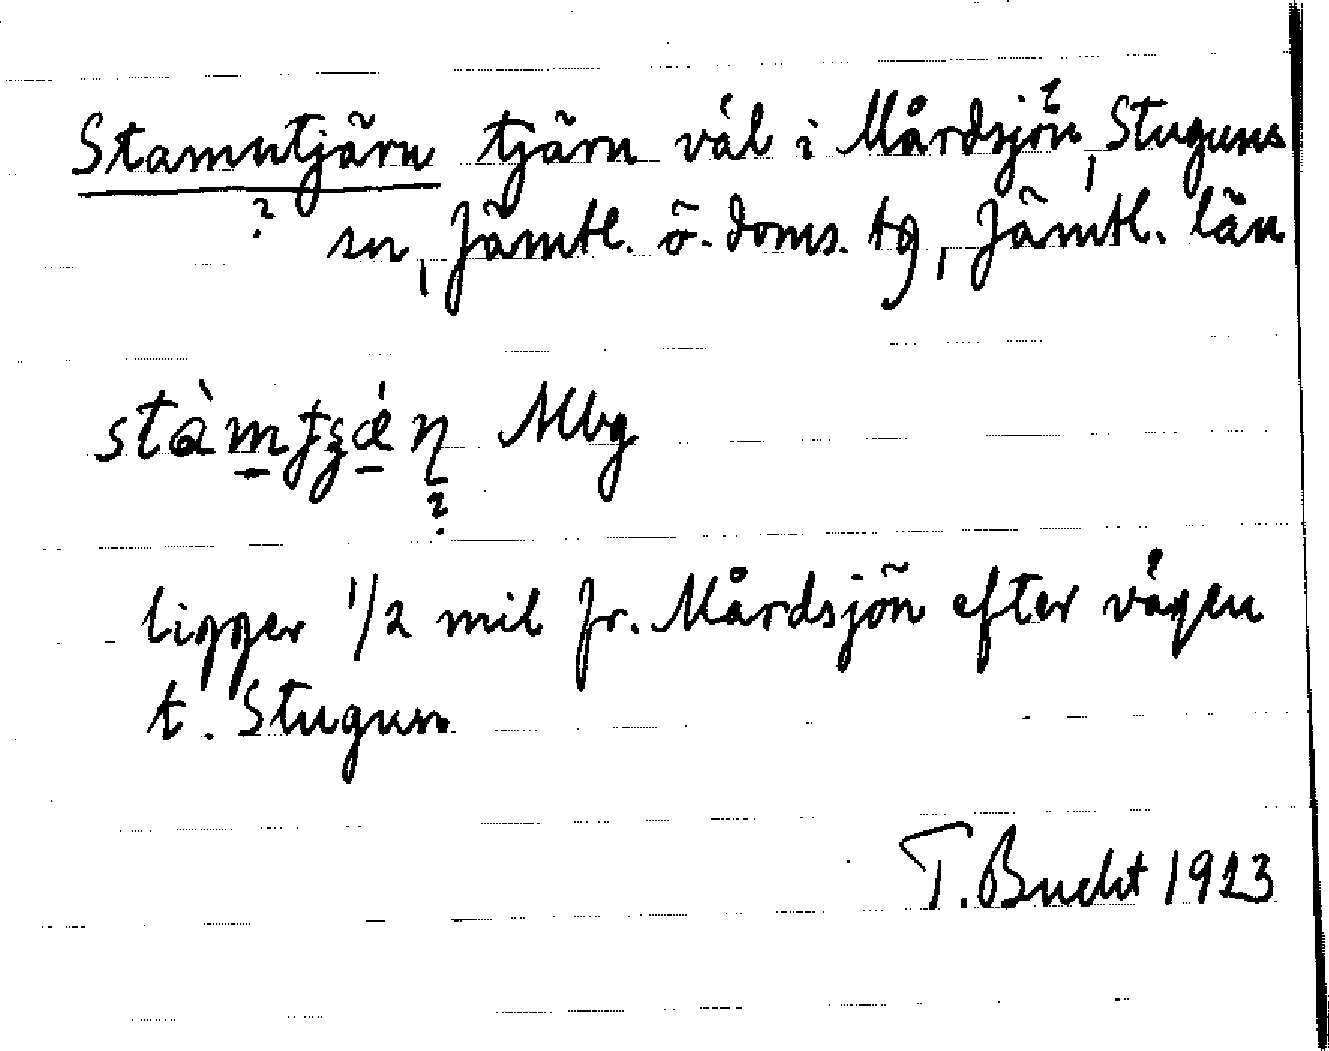 Stamntjärn tjärn väl i Mårdsjön?, Stuguns
? sn, Jämtl. ö. doms. tg, Jämtl. län
Mbg
?
ligger 1/2 mil fr. Mårdsjön efter vägen
t. Stugun
T. Bucht 1923